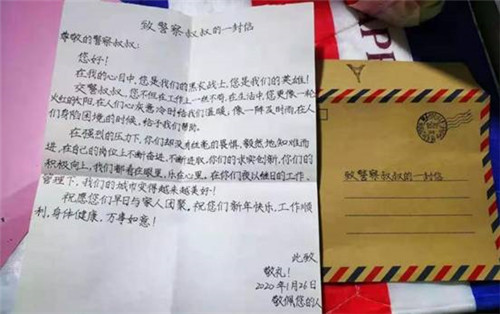 致警察叔叔的一封信
尊敬的警察叔叔：
您好！
在我的心目中，您是我们的黑长战士，您是我们的英雄！
交警叔叔，您不但在工作上一丝不苟，在生活中，您更像一轮
火红的太阳，在人们心灰意冷时给我们温暖，像一阵及时雨，在人
们身陷困境的时候，给予我们帮助。
在强烈的压力下，你们却没有丝毫的畏惧，毅然地知难而
进，在自己的岗位上不断奋进，不断进取，你们的求实创新，你们的
积极向上，我们都看在眼里，乐在心里。在你们夜以继日的工作、
管理下，我们的城市变得越来越美好！
祝愿您们早日与家人团聚。祝您们新年快乐，工作顺
利，身体健康，万事如意！
此致
敬礼！
2020年1月26日
敬佩您的人
致警察叔叔的一封信